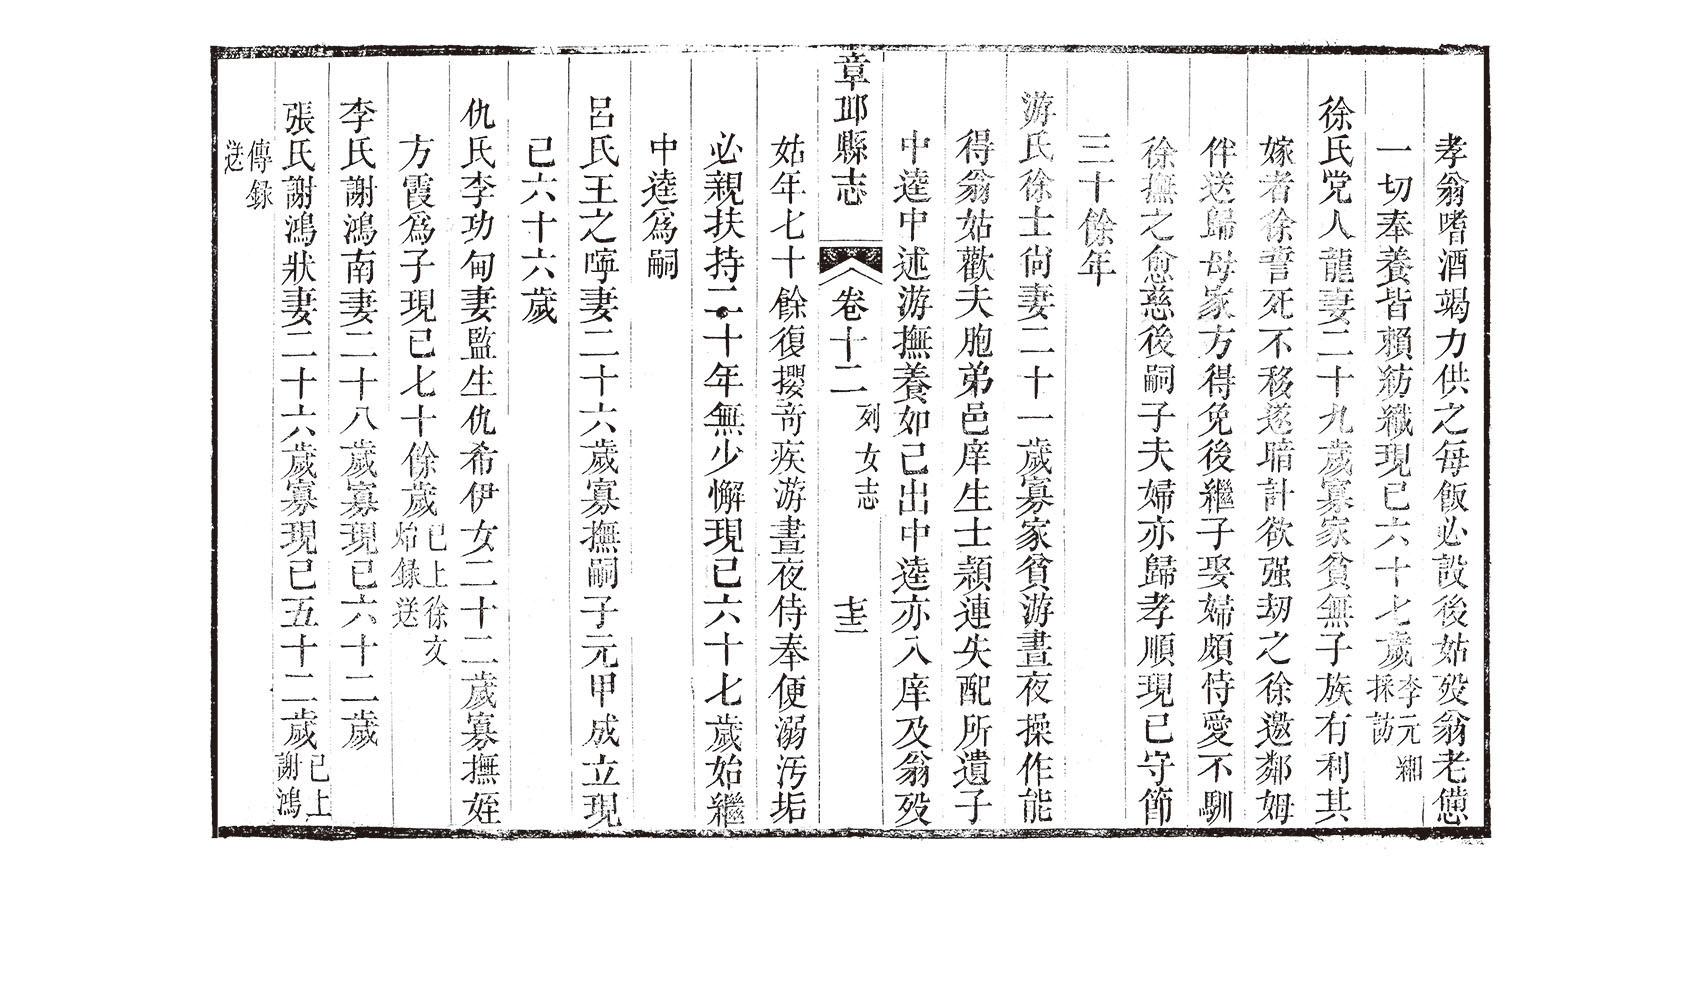 孝翁嗜酒竭力供之每飯必設後姑歿翁老憊
一切奉養皆賴紡織現已六十七歲李元繝採訪
徐氏党人龍妻二十九歲寡家貧無子族有利其
嫁者徐誓死不移遂暗計欲强刼之徐邀鄰姆
伴送歸母家方得免後繼子娶婦頗恃愛不馴
徐撫之愈慈後嗣子夫婦亦歸孝順現已守節
三十餘年
游氏徐士尙妻二十一歲寡家貧游晝夜操作能
得翁姑歡夫胞弟邑庠生士潁連失配所遺子
中逵中述游撫養如己出中逵亦入庠及翁歿
章邱縣志 卷十二 列女志 七三
姑年七十餘復攖奇疾游晝夜侍奉便溺汚垢
必親扶持二十年無少懈現已六十七歲始繼
中逵爲嗣
呂氏王之寧妻二十六歲寡撫嗣子元甲成立現
已六十六歲
仇氏李功甸妻監生仇希伊女二十二歲寡撫姪
方霞爲子現已七十餘歲已上徐文炲錄送
李氏謝鴻南妻二十八歲寡現已六十二歲
張氏謝鴻狀妻二十六歲寡現已五十二歲已上謝鴻
傳錄送